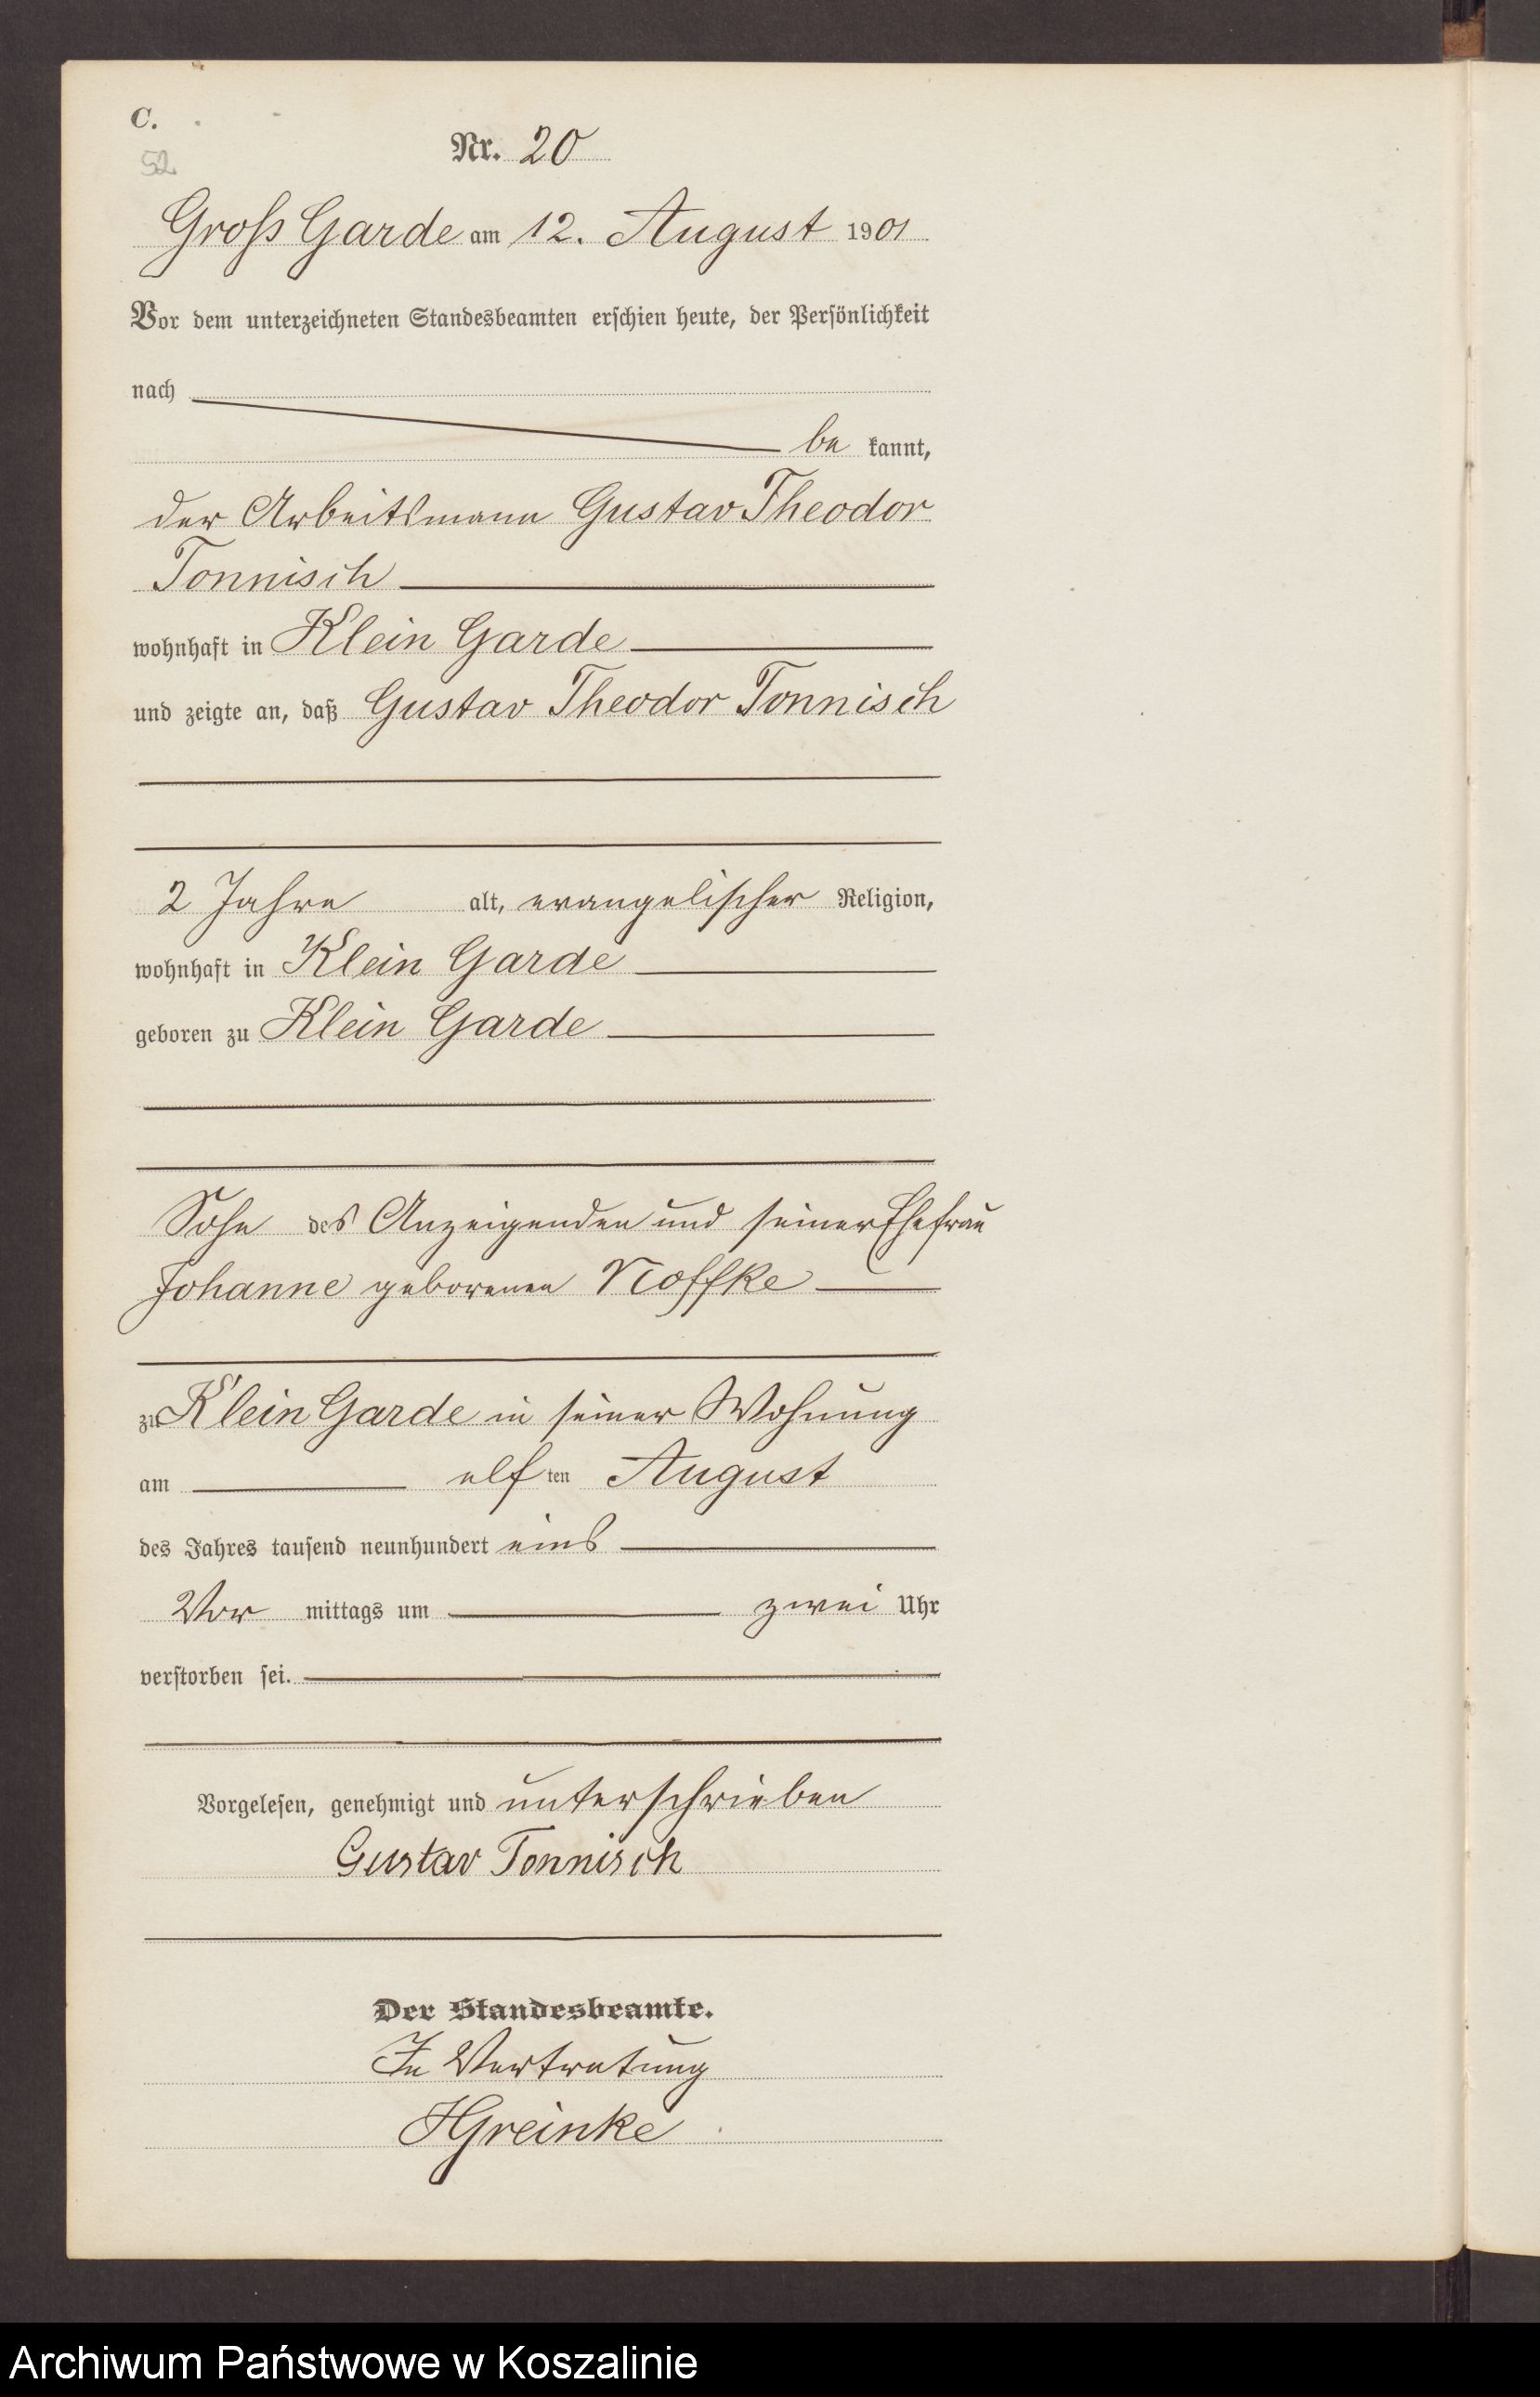 C.
52
Nr. 20
Gross Garde am 12. August 1901
Vor dem unterzeichneten Standesbeamten erschien heute, der Persönlichkeit
nach
be kannt,
der Arbeitsmann Gustav Theodor
Tonnisch
wohnhaft in Klein Garde
und zeigte an, daß Gustav Theodor Tonnisch
2 Jahre alt, evangelischer Religion,
wohnhaft in Klein Garde
geboren zu Klein Garde
Sohn des Anzeigenden und seiner Ehefrau
Johanne geborenen Noffke
zu Klein Garde in seiner Wohnung
am elf ten August
des Jahres tausend neunhundert eins
Vor mittags um zwei Uhr
verstorben sei.
Vorgelesen, genehmigt und unterschrieben
Gustav Tonnisch
Der Standesbeamte.
In Vertretung
HGreinke
Archiwum Państwowe w Koszalinie